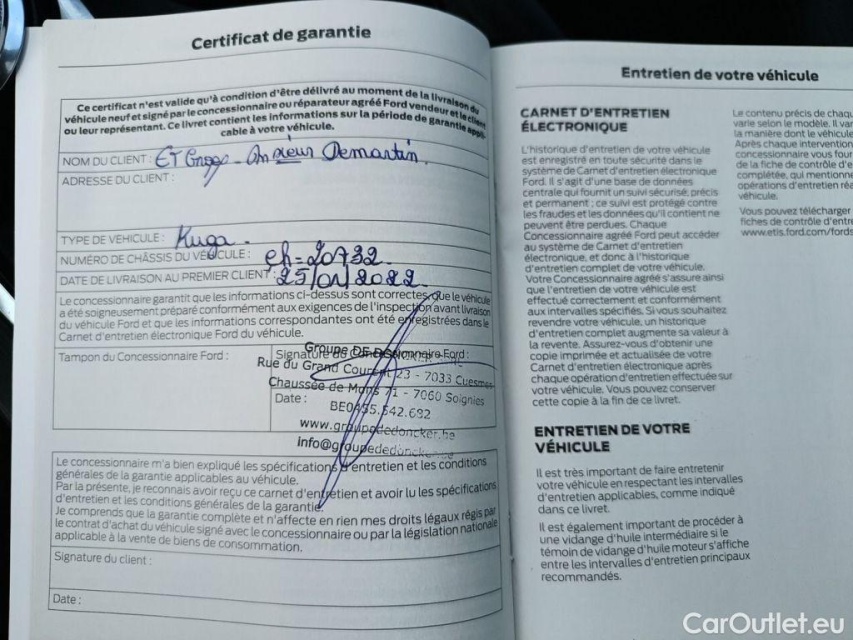 Certificat de garantie
Ce certificat n'est valide qu'à condition d'être délivré au moment de la livraison du
véhicule neuf et signé par le concessionnaire ou réparateur agréé Ford vendeur et le client
ou leur représentant. Ce livret contient les informations sur la période de garantie appli-
cable à votre véhicule.
NOM DU CLIENT : Demartin
ADRESSE DU CLIENT :
TYPE DE VEHICULE : Kuga
NUMÉRO DE CHÂSSIS DU VÉHICULE : ch=20732
DATE DE LIVRAISON AU PREMIER CLIENT : 25/01/2022
Le concessionnaire garantit que les informations ci-dessus sont correctes, que le véhicule
a été soigneusement préparé conformément aux exigences de l'inspection avant livraison
du véhicule Ford et que les informations correspondantes ont été enregistrées dans le
Carnet d'entretien électronique Ford du véhicule.
Tampon du Concessionnaire Ford :
Signature du Concessionnaire Ford :
Groupe DE
Rue du Grand Courant 23 - 7033 Cuesmes
Chaussée de Mons 71 - 7060 Soignies
Date :
BE0455.542.692
www.groupededoncker.be
info@groupededoncker.be
Le concessionnaire m'a bien expliqué les spécifications d'entretien et les conditions
générales de la garantie applicables au véhicule.
Par la présente, je reconnais avoir reçu ce carnet d'entretien et avoir lu les spécifications
d'entretien et les conditions générales de la garantie.
Je comprends que la garantie complète et n'affecte en rien mes droits légaux régis par
le contrat d'achat du véhicule signé avec le concessionnaire ou par la législation nationale
applicable à la vente de biens de consommation.
Signature du client :
Date :
Entretien de votre véhicule
CARNET D'ENTRETIEN
ÉLECTRONIQUE
L'historique d'entretien de votre véhicule
est enregistré en toute sécurité dans le
système de Carnet d'entretien électronique
Ford. Il s'agit d'une base de données
centrale qui fournit un suivi sécurisé, précis
et permanent ; ce suivi est protégé contre
les fraudes et les données qu'il contient ne
peuvent être perdues. Chaque
Concessionnaire agréé Ford peut accéder
au système de Carnet d'entretien
électronique, et donc à l'historique
d'entretien complet de votre véhicule.
Votre Concessionnaire agréé s'assure ainsi
que l'entretien de votre véhicule est
effectué correctement et conformément
aux intervalles spécifiés. Si vous souhaitez
revendre votre véhicule, un historique
d'entretien complet augmente sa valeur à
la revente. Assurez-vous d'obtenir une
copie imprimée et actualisée de votre
Carnet d'entretien électronique après
chaque opération d'entretien effectuée sur
votre véhicule. Vous pouvez conserver
cette copie à la fin de ce livret.
ENTRETIEN DE VOTRE
VÉHICULE
Il est très important de faire entretenir
votre véhicule en respectant les intervalles
d'entretien applicables, comme indiqué
dans ce livret.
Il est également important de procéder à
une vidange d'huile intermédiaire si le
témoin de vidange d'huile moteur s'affiche
entre les intervalles d'entretien principaux
recommandés.
Le contenu précis de chaqu
varie selon le modèle. Il var
la manière dont le véhicule
Après chaque intervention
concessionnaire vous four
de la fiche de contrôle d'e
complétée, qui mentionne
opérations d'entretien réa
véhicule.
Vous pouvez télécharger
fiches de contrôle d'entre
www.etis.ford.com/fords
CarOutlet.eu